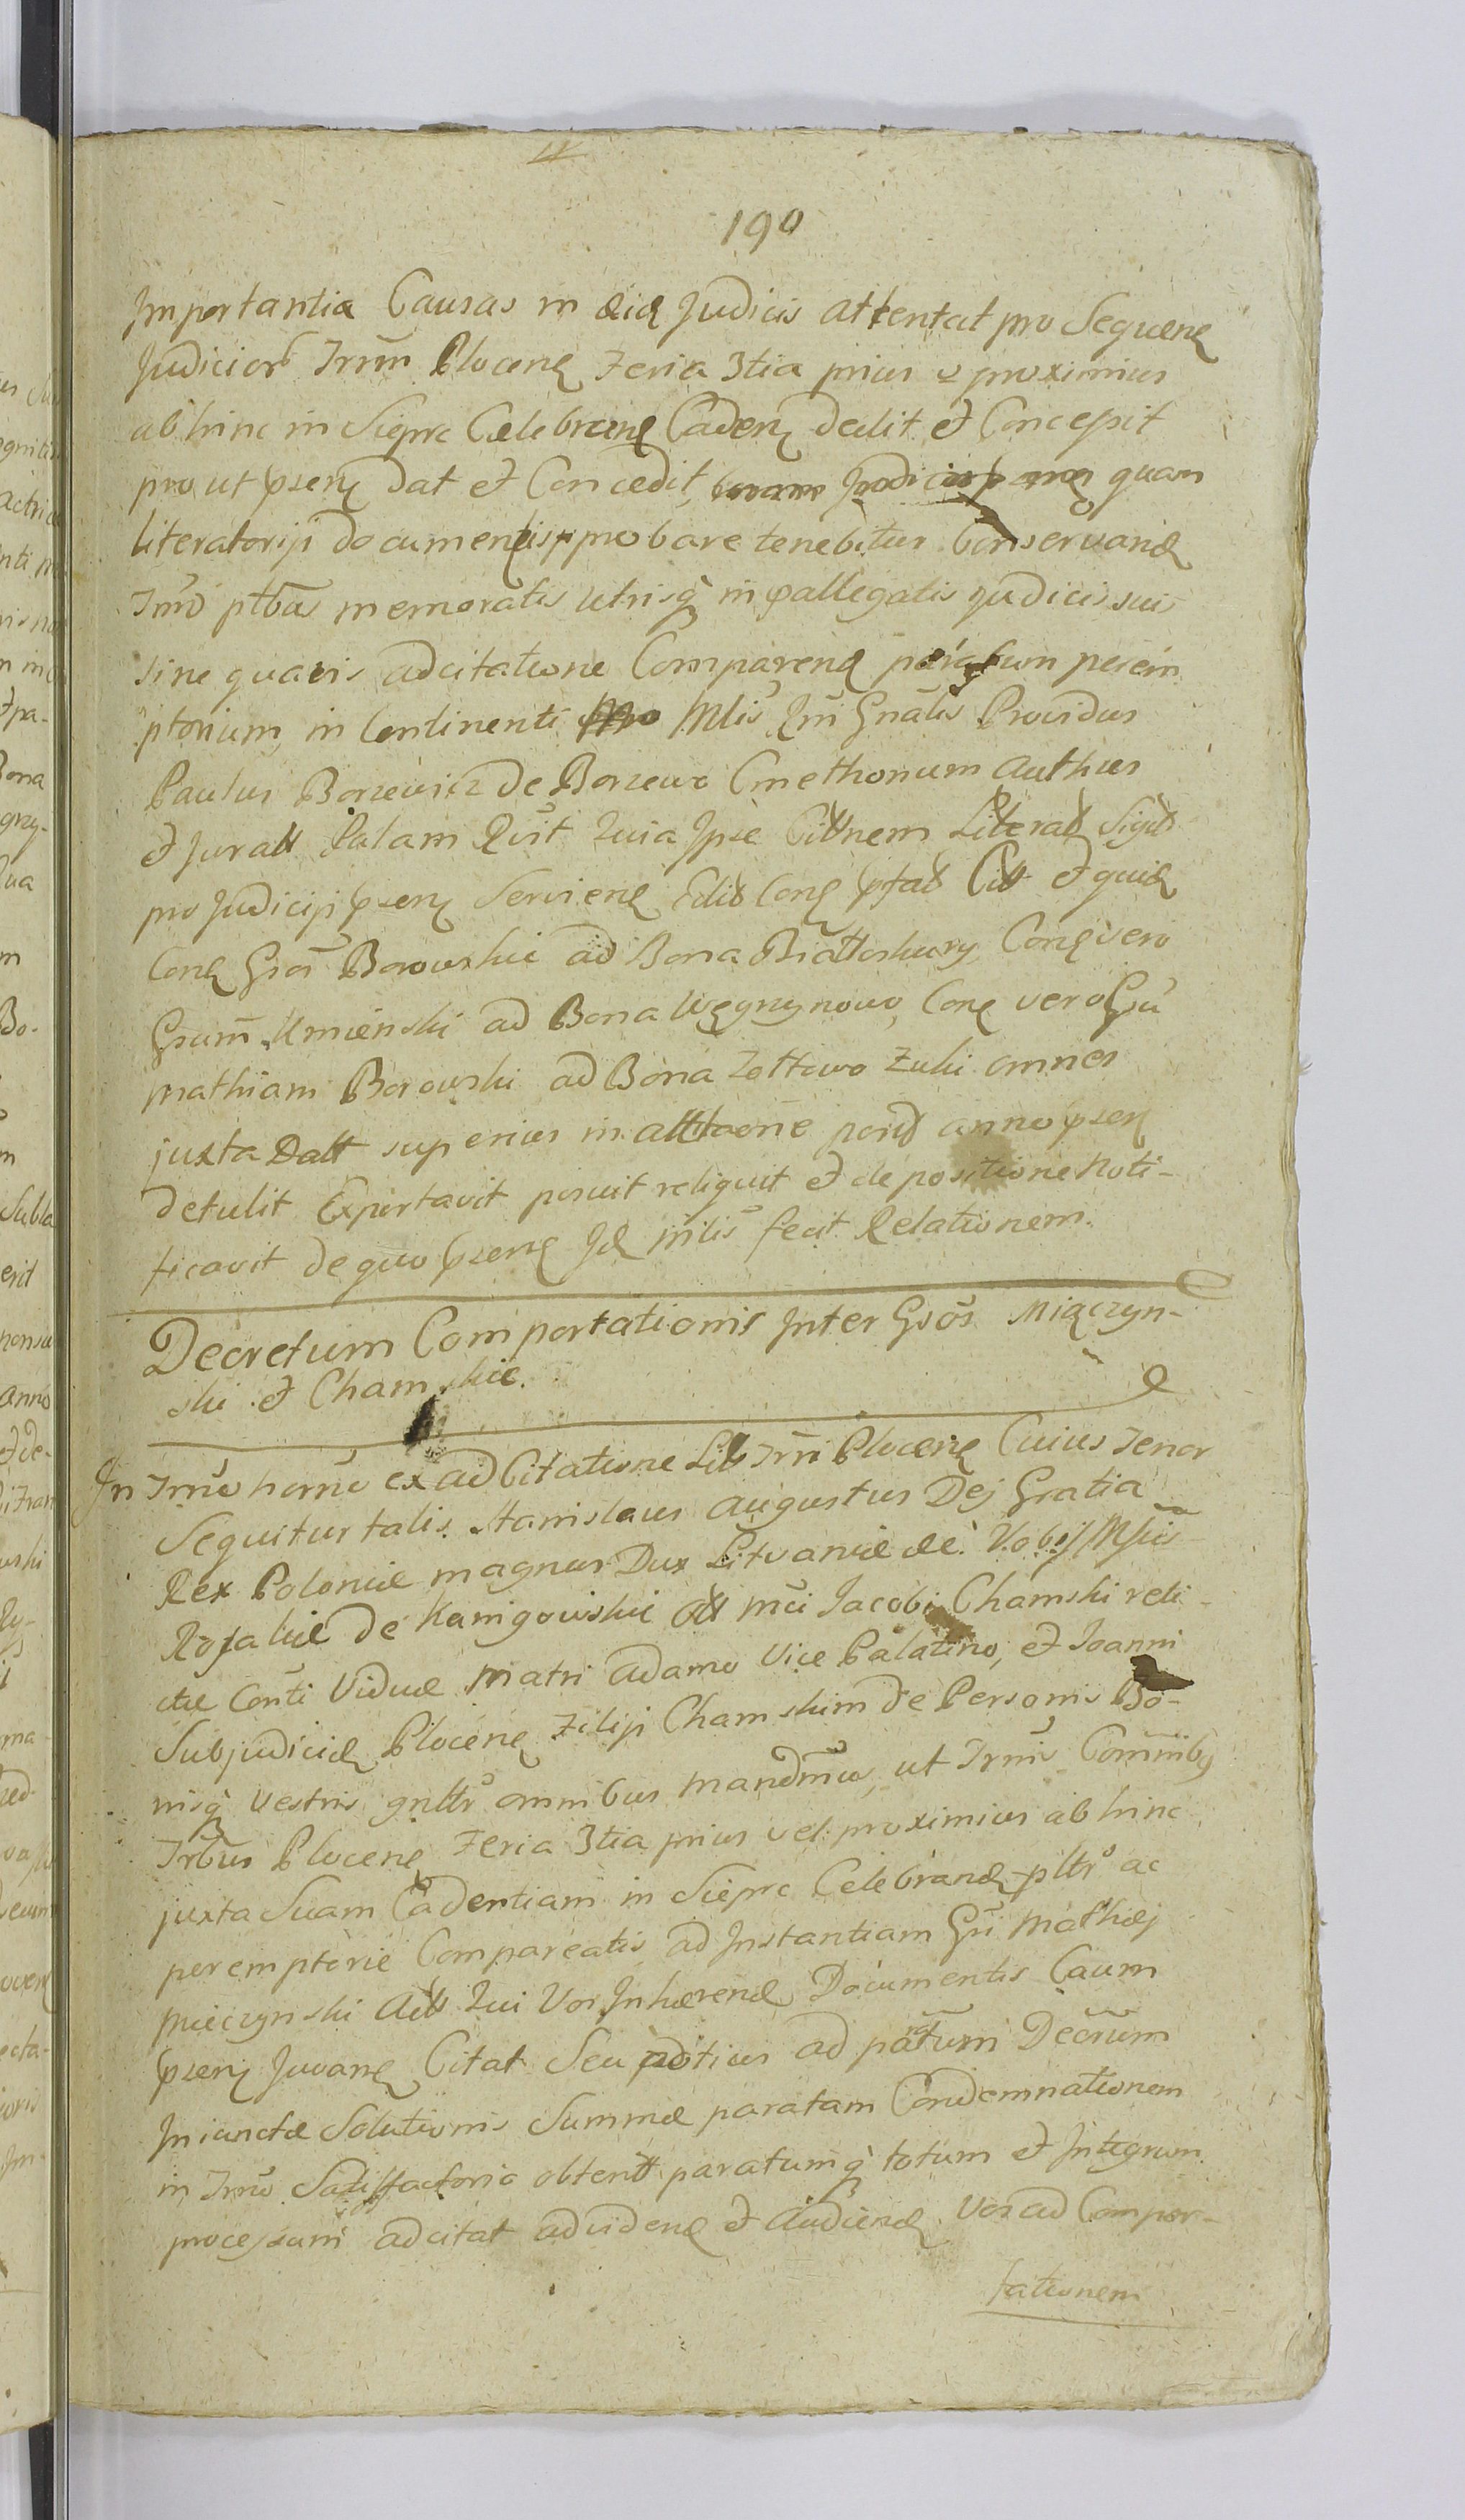 190
Importantia Causas in eid Judiciis attentat pro Sequen
Judicior Trrm Plocen Feria 3tia prius v proximius
abhinc in Sieprc Celebren Caden dedit et Concessit
pro ut psen dat et Concedit, quam
literatoriji documentis probare tenebitur Conservand
Trmo ptbus memoratis utrisq in pallegatis Judiciis suis
sine quavis adcitatione Comparend perem
ptorium, in Continenti Mlis Rni Gnalis Providus
Paulus Borzewicz de Borzewo Cmethonum Authus
et Juratt Palam Rvit Quia Ipse Citt̄nem Literatt Sigitt
pro Judiciji psen Servien Edit Con ptatt Citt et quid
Con Gsos Borowskie ad Bona Białłoskury Con vero
Gsum Umienski ad Bona Węgrzynowo, Con vero Gsu
Mathiam Borowski ad Bona Zottowo Zuki omnes
juxta Datt superius in atttaone posit anno psen
detulit Exportavit posuit reliquit et de positione Noti-
ficavit de quo psens Id mlis fecit Relationem.
Decretum Comportationis Inter Gsos Miączyn-
ski et Chamskie.
In Trmo horno ex adCitatione Litt Trri Plocen Cuius Tenor
Sequitur talis. Stanislaus Augustus Dej Gratia
Rex Poloniæ magnus Dux Litvaniæ &c. Vobis Msiis
Rosaliæ de Kanigowskie Ott mci Jacobi Chamski reli-
ctæ Conti Viduæ Matri Adamo Vice Palatino, et Joanni
Subjudici Plocen Filiji Chamskim de Personis Bo-
nisq Vestris gnltr omnibus mandmus, ut Trmis Commibq
Trbus Plocen Feria 3tia prius vel proximius abhinc
juxta Suam Cadentiam in Sieprc Celebrand pltr ac
peremptorie Compareatis ad Instantiam Gsi Mathej
Mieczynski Actt Qui Vos Inhærend Documentis Caum
psen Juvan Citat Seu potius ad patum Decrum
Iniunctæ Solutionis Summæ paratam Condemnationem
in Trmo Satisfactorio obtentt paratumq totum et Integrum
processum adcitat ad viden et Audiend Vos ad Compor-
tationem